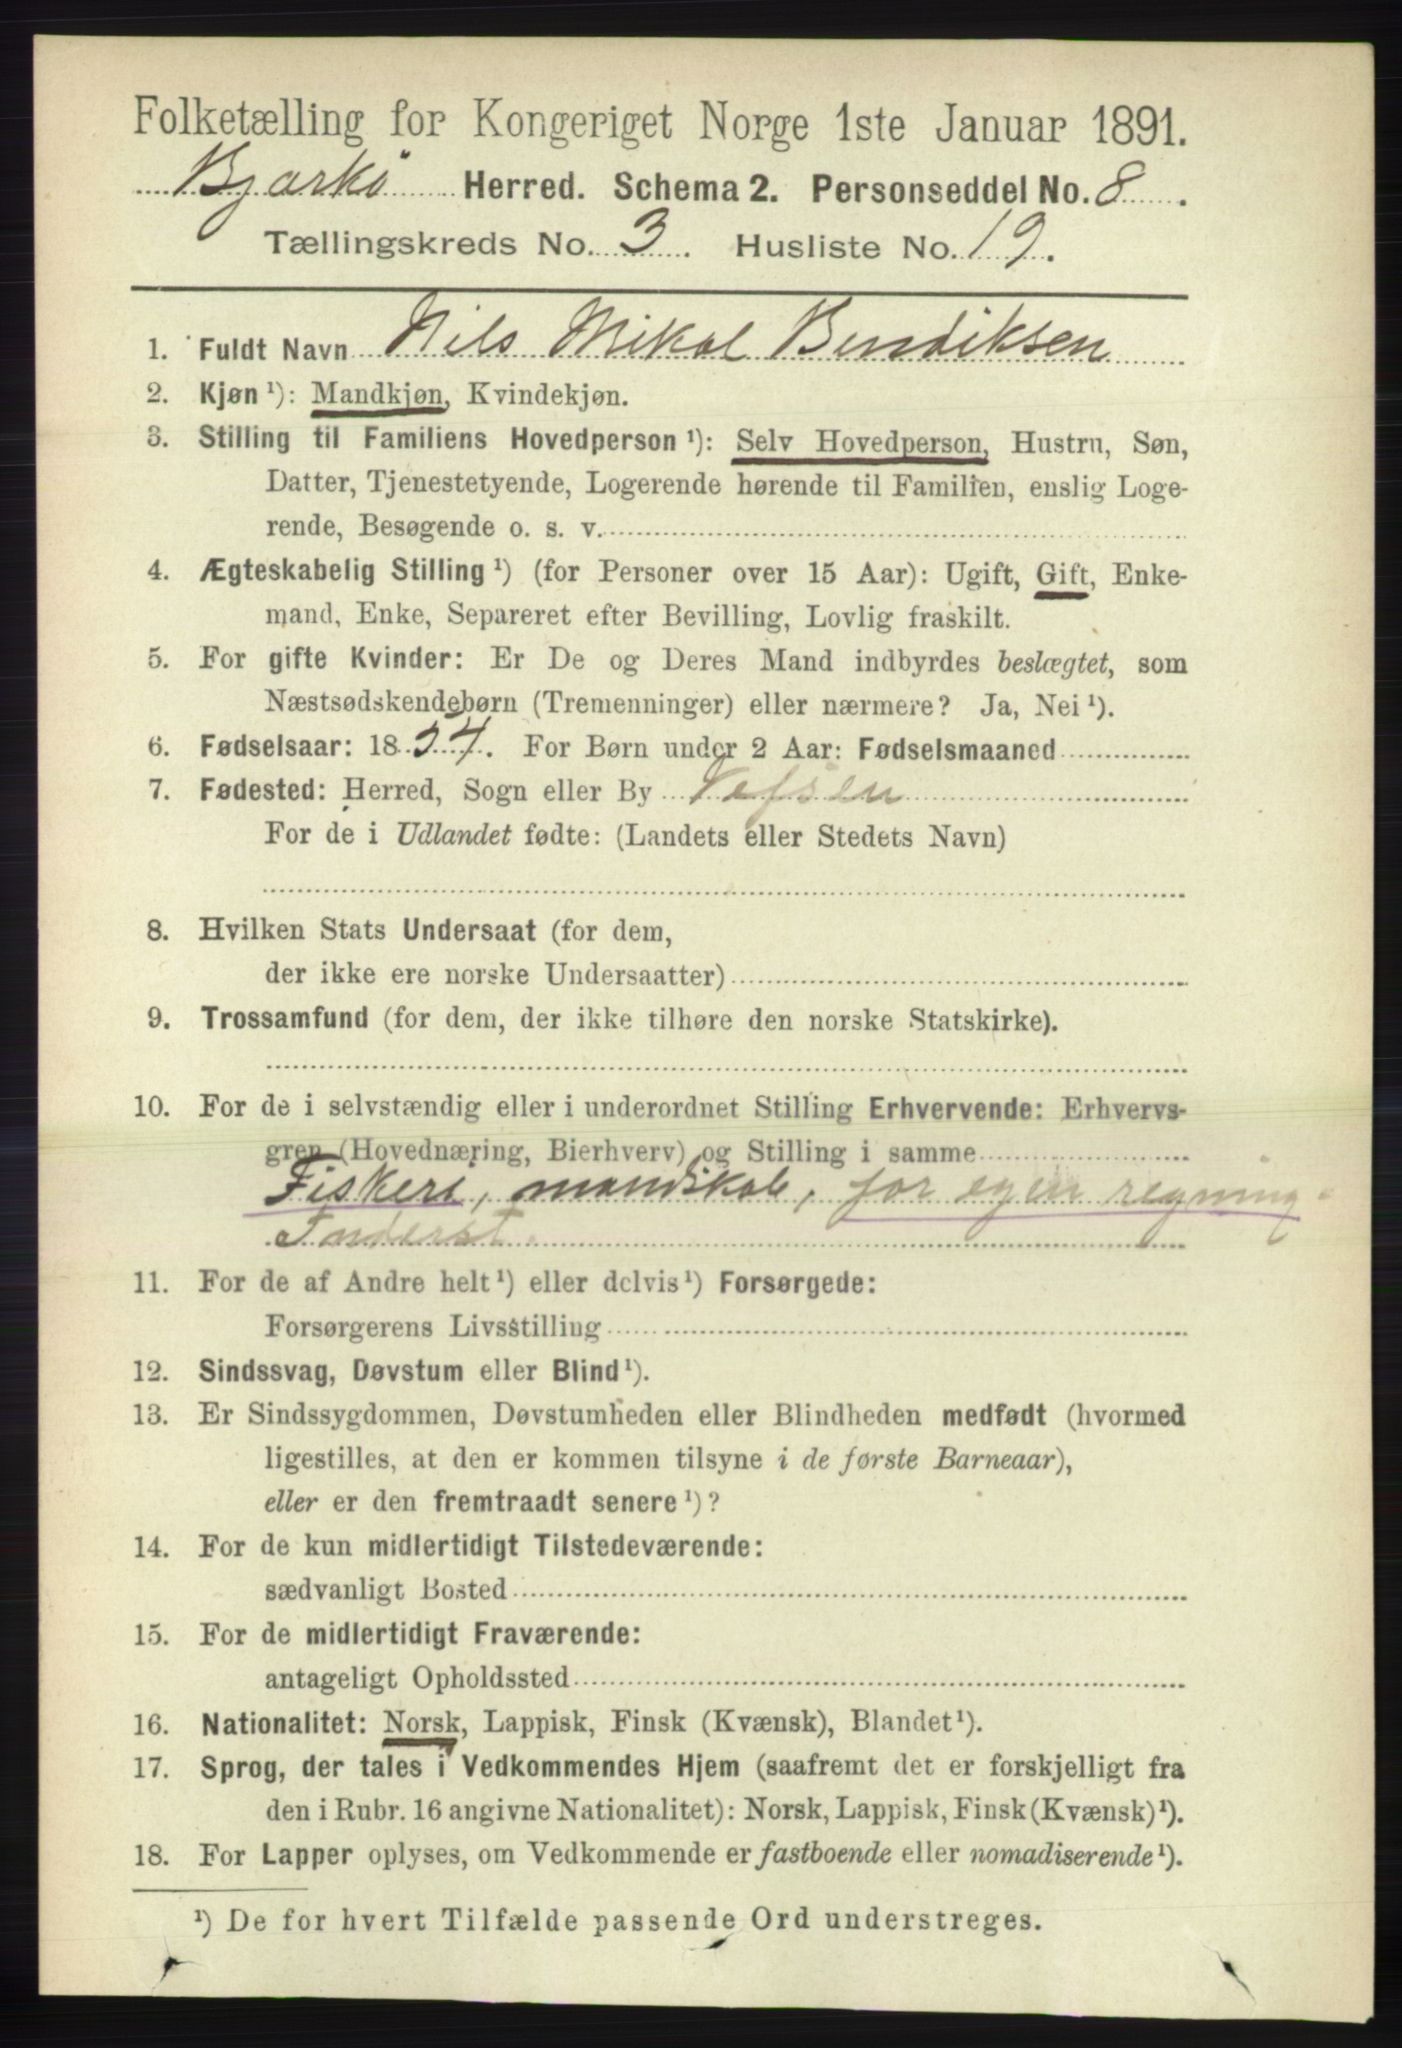 Folketælling for Kongeriget Norge 1ste Januar 1891.
Bjarkö Herred. Schema 2. Personseddel No. 8.
Tællingskreds No. 3. Husliste No. 19.
1. Fuldt Navn Nils Mikal Bendiksen
2. Kjøn ¹): Mandkjøn, Kvindekjøn.
3. Stilling til Familiens Hovedperson ¹): Selv Hovedperson, Hustru, Søn,
Datter, Tjenestetyende, Logerende hørende til Familien, enslig Loge-
rende, Besøgende o. s. v.
4. Ægteskabelig Stilling ¹) (for Personer over 15 Aar): Ugift, Gift, Enke-
mand, Enke, Separeret efter Bevilling, Lovlig fraskilt.
5. For gifte Kvinder: Er De og Deres Mand indbyrdes beslægtet, som
Næstsødskendebørn (Tremenninger) eller nærmere? Ja, Nei ¹).
6. Fødselsaar: 1854. For Børn under 2 Aar: Fødselsmaaned
7. Fødested: Herred, Sogn eller By Vefsen
For de i Udlandet fødte: (Landets eller Stedets Navn)
8. Hvilken Stats Undersaat (for dem,
der ikke ere norske Undersaatter)
9. Trossamfund (for dem, der ikke tilhøre den norske Statskirke).
10. For de i selvstændig eller i underordnet Stilling Erhvervende: Erhvervs-
gren (Hovednæring, Bierhverv) og Stilling i samme
Fiskeri, mandskab, for egen regning
Inderst.
11. For de af Andre helt ¹) eller delvis ¹) Forsørgede:
Forsørgerens Livsstilling
12. Sindssvag, Døvstum eller Blind ¹).
13. Er Sindssygdommen, Døvstumheden eller Blindheden medfødt (hvormed
ligestilles, at den er kommen tilsyne i de første Barneaar),
eller er den fremtraadt senere ¹)?
14. For de kun midlertidigt Tilstedeværende:
sædvanligt Bosted
15. For de midlertidigt Fraværende:
antageligt Opholdssted
16. Nationalitet: Norsk, Lappisk, Finsk (Kvænsk), Blandet ¹).
17. Sprog, der tales i Vedkommendes Hjem (saafremt det er forskjelligt fra
den i Rubr. 16 angivne Nationalitet): Norsk, Lappisk, Finsk (Kvænsk) ¹).
18. For Lapper oplyses, om Vedkommende er fastboende eller nomadiserende ¹).
¹) De for hvert Tilfælde passende Ord understreges.